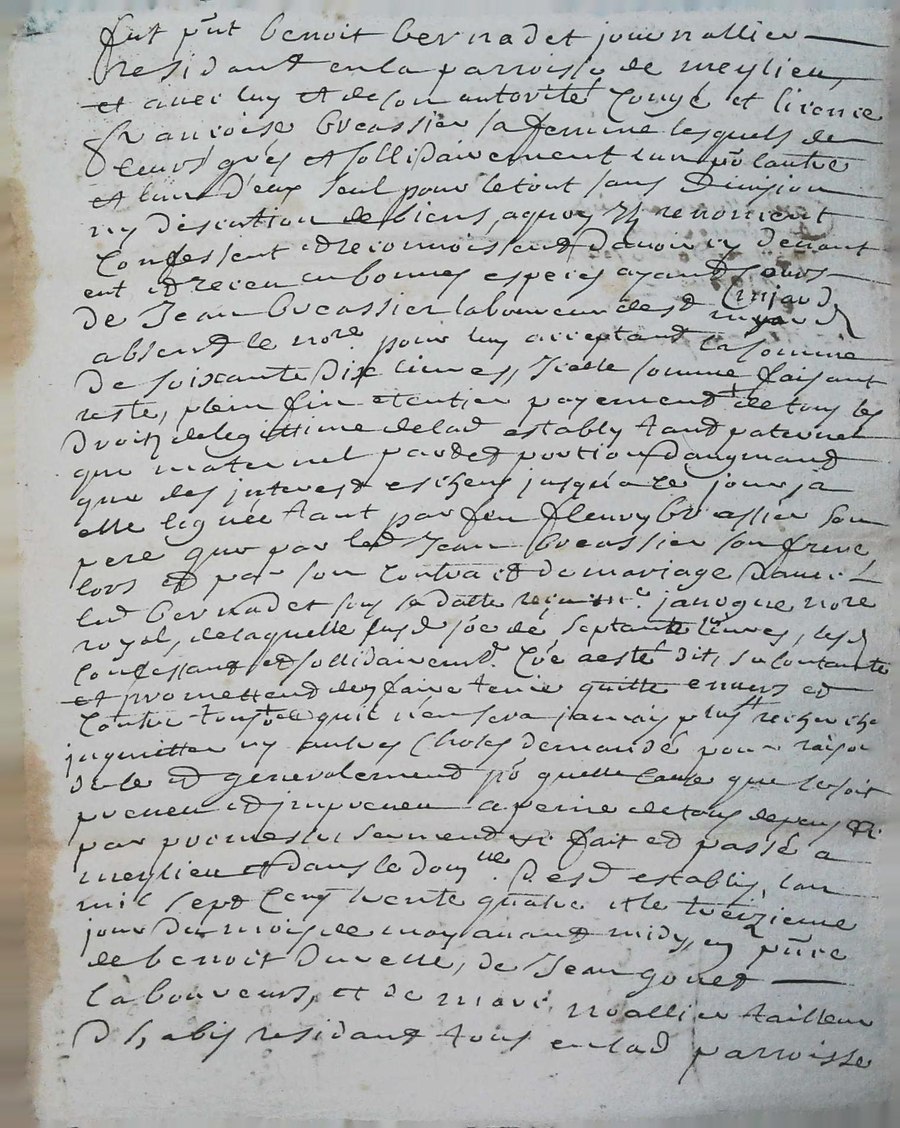 fut pñt benoit bernadet journallier
residant en la parroisse de meylieu,
et avec luy et de son autorité Congé et licence
françoise brassier sa femme lesquels de
leurs grés et sollidairement lun pō lautre
et lun d'eux seul pour le tout sans Division
ny discution de biens, a quoy ils renoncent
Confessent et reconnoissent davoir cy devant
eut et receu en bonnes especes ayant cours
de Jean brassier laboureur dud
absent le nore pour luy acceptant la somme
De soixante Dix livres, Icelle somme faisant
reste, plein fin et entier payement de tous les
Droits de legittime de lad establye tant paternel
que maternel part et portion Daugmand
que des interest escheus jusqua ce jour a
elle leguée tant par feu fleury brassier son
pere que par led Jean brassier son frere
lors et par son Contract de mariage avec
led bernadet sous sa datte receu me janogue nore
royal, de laquelle susd sōe de septante livres, lesd
Confessant et sollidairemt
et promettend den faire tenir quitte envers et
Contre tous quil nen sera jamais plus recherché
inquietter ny autres Choses demandé pour raison
dicelle et generalement pō quelle cause que ce soit
preveu et impreveu a peine de tous depens
par promesse serment fait et passé a
meylieu et dans le domlle Desd establis, lan
mil sept Cent trente quatre et le treizieme
jour Du mois de may avant midy, en pñce
de benoit Duvelle, de Jean gonet
laboureurs, et de marc noallier tailleur
D'habis residant tous en lad parroisse